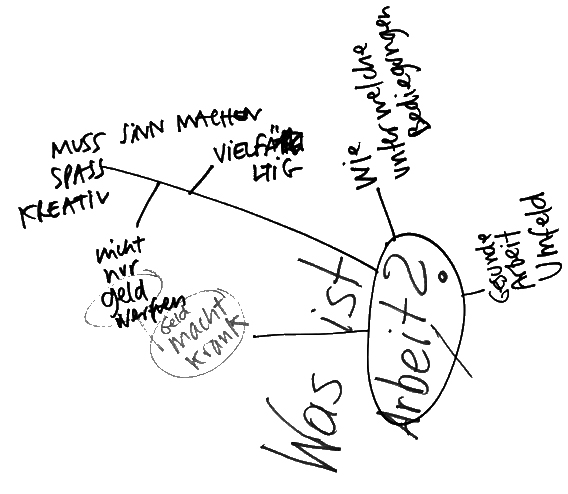 Was
ist
Arbeit?
MUSS SINN MACHEN
SPASS
KREATIV
VIELFÄ
LTIG
nicht
nur
geld
Geld
macht
krank
Wie
unter welche
Bediegungen
Gesunde
Arbeit
Umfeld